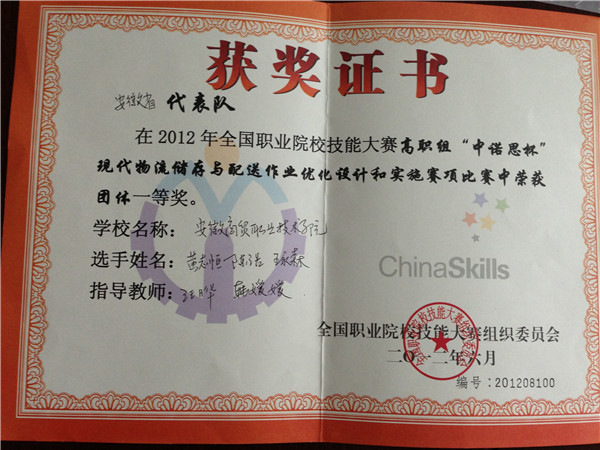 获奖证书
安徽省 代表队
在2012年全国职业院校技能大赛高职组“中诺思杯”
现代物流储存与配送作业优化设计和实施赛项比赛中荣获
团体一等奖。
学校名称：安徽商贸职业技术学院
选手姓名：黄志恒
指导教师：王晔 韩媛媛
ChinaSkills
全国职业院校技能大赛组织委员会
二〇一二年六月
编号：201208100